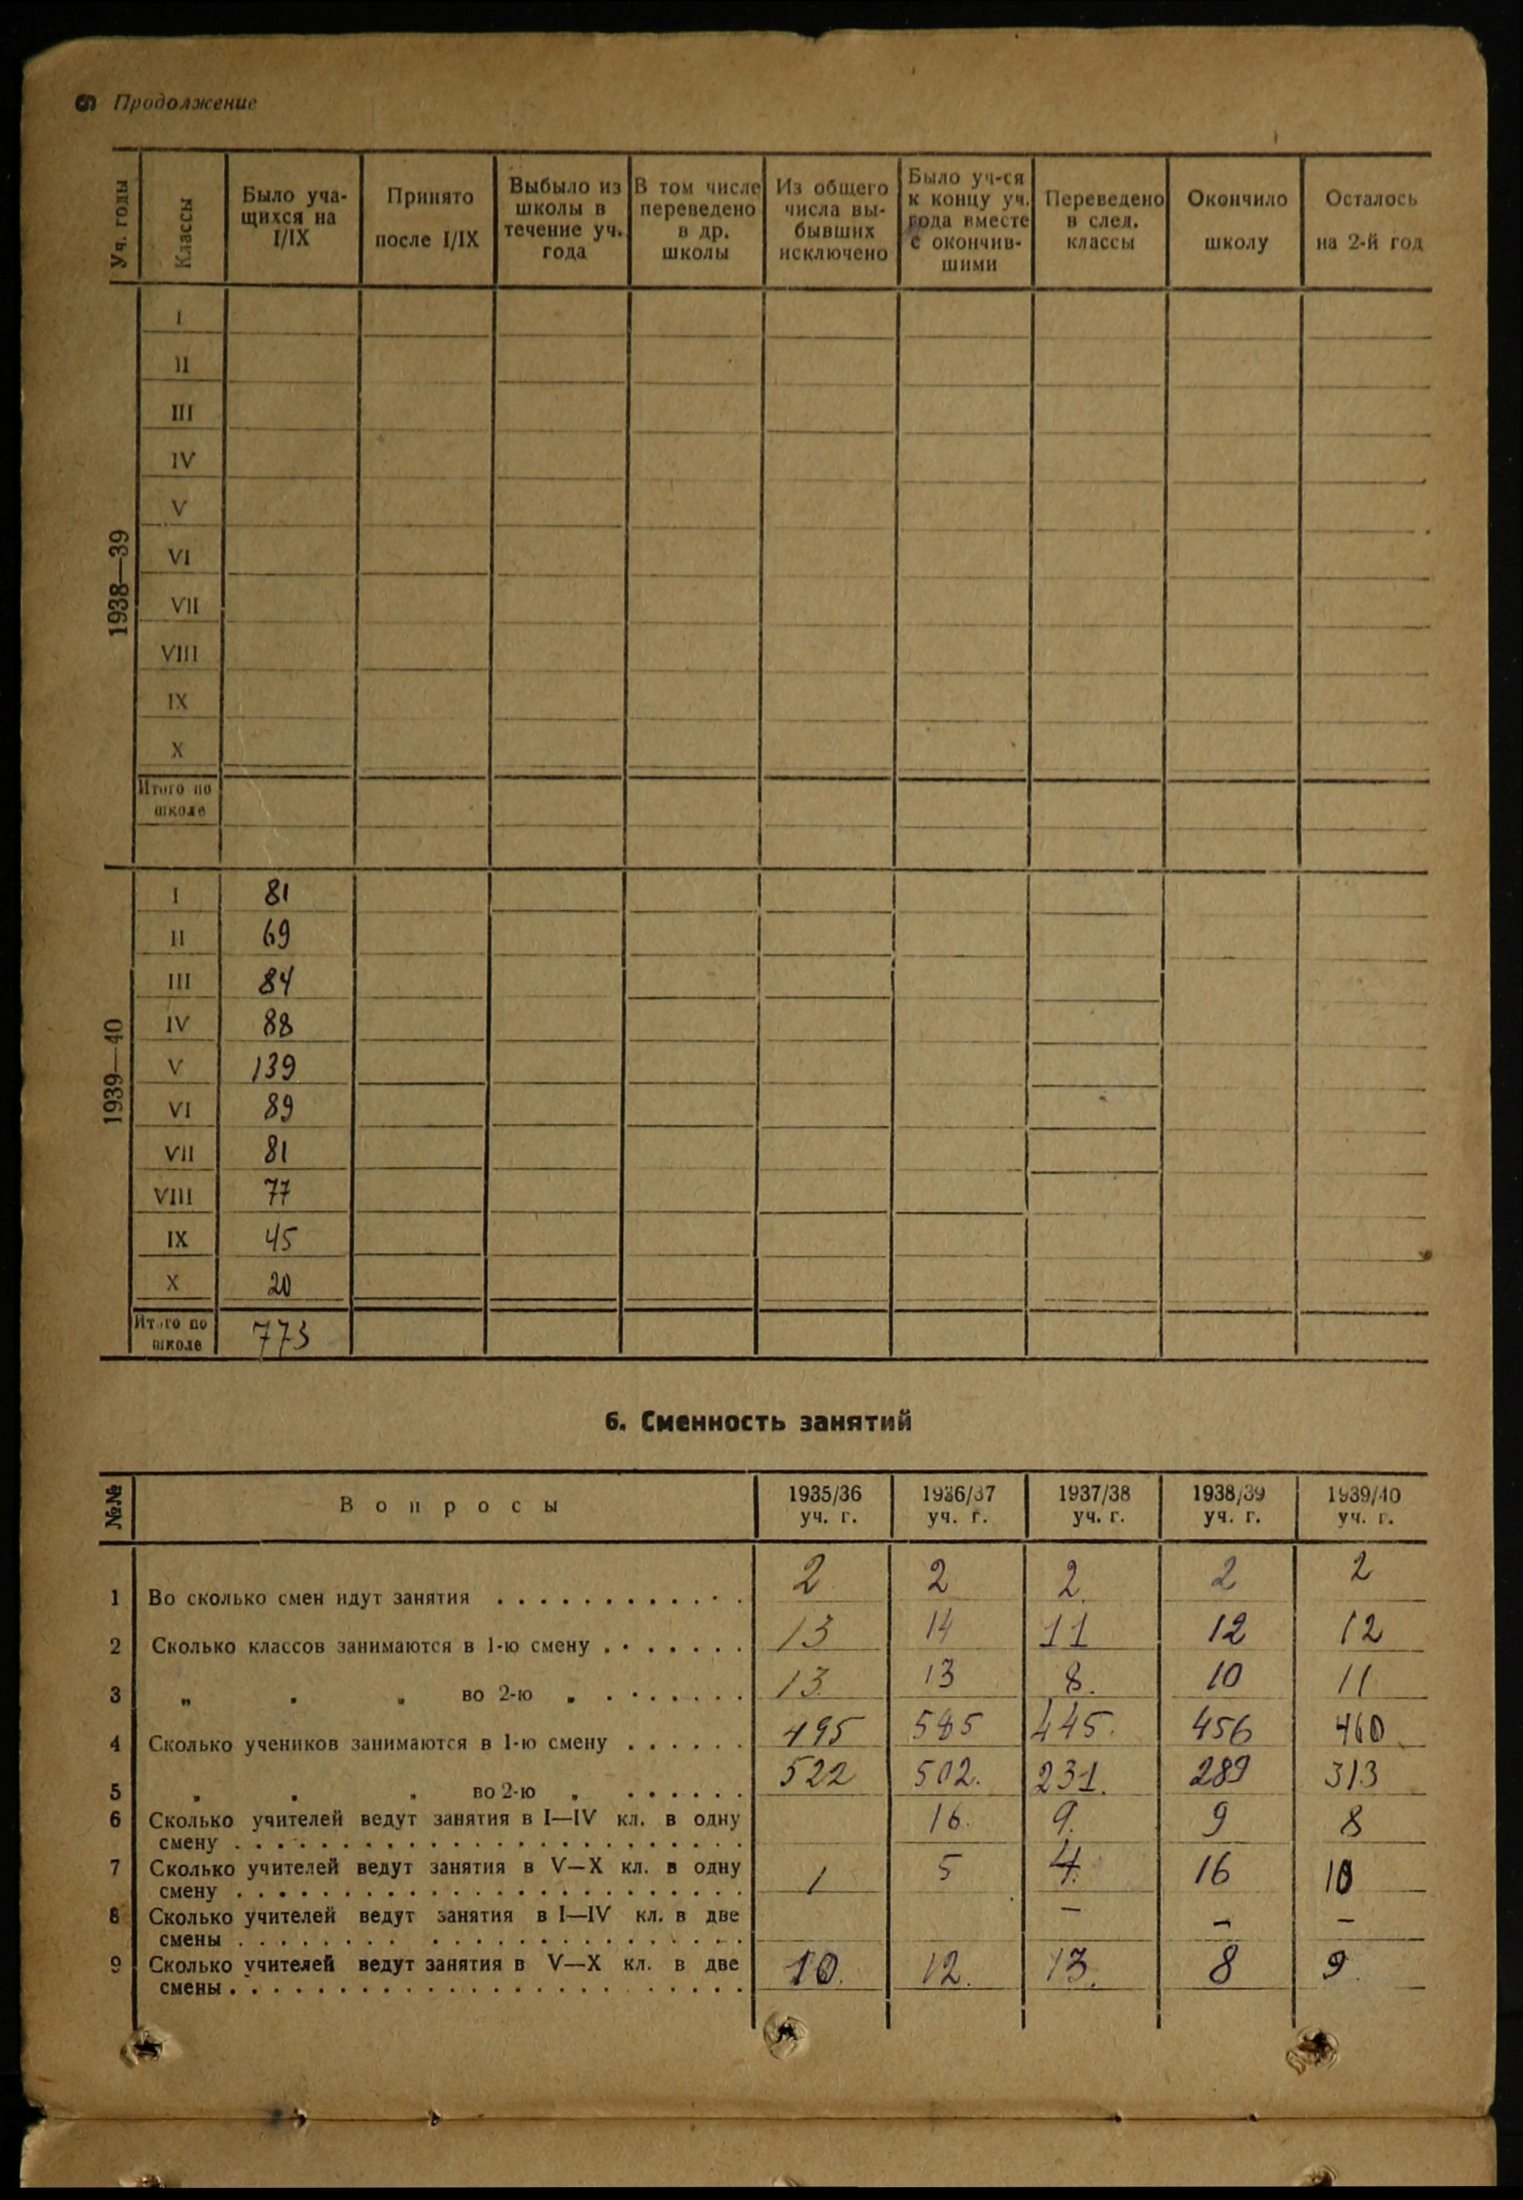 6 Продолжение
Уч. годы
Классы
Было уча-
щихся на
I/IX
Принято
после I/IX
Выбыло из
школы в
течение уч.
года
В том числе
переведено
в др.
школы
Из общего
числа вы-
бывших
исключено
Было уч-ся
к концу уч.
года вместе
с окончив-
шими
Переведено
в след.
классы
Окончило
школу
Осталось
на 2-й год
1938—39
I
II
III
IV
V
VI
VII
VIII
IX
X
Итого по
школе
1939—40
I 81
II 69
III 84
IV 88
V 139
VI 89
VII 81
VIII 77
IX 45
X 20
Итого по
школе 773
6. Сменность занятий
№№ Вопросы 1935/36 уч. г. 1936/37 уч. г. 1937/38 уч. г. 1938/39 уч. г. 1939/40 уч. г.
1 Во сколько смен идут занятия . . . . . . . . . . . . 2 2 2 2 2
2 Сколько классов занимаются в 1-ю смену . . . . . . . 13 14 11 12 12
3 „ „ „ во 2-ю „ . . . . . . . 13 13 8. 10 11
4 Сколько учеников занимаются в 1-ю смену . . . . . . 495 585 445. 456 460
5 „ „ „ во 2-ю „ . . . . . . 522 502. 231. 289 313
6 Сколько учителей ведут занятия в I—IV кл. в одну
смену . . . . . . . . . . . . . . . . . . . . . . . 16. 9. 9 8
7 Сколько учителей ведут занятия в V—X кл. в одну
смену . . . . . . . . . . . . . . . . . . . . . . . 1 5 4. 16 10
8 Сколько учителей ведут занятия в I—IV кл. в две
смены . . . . . . . . . . . . . . . . . . . . . . — — —
9 Сколько учителей ведут занятия в V—X кл. в две
смены . . . . . . . . . . . . . . . . . . . . . . . 10. 12. 13. 8 9.